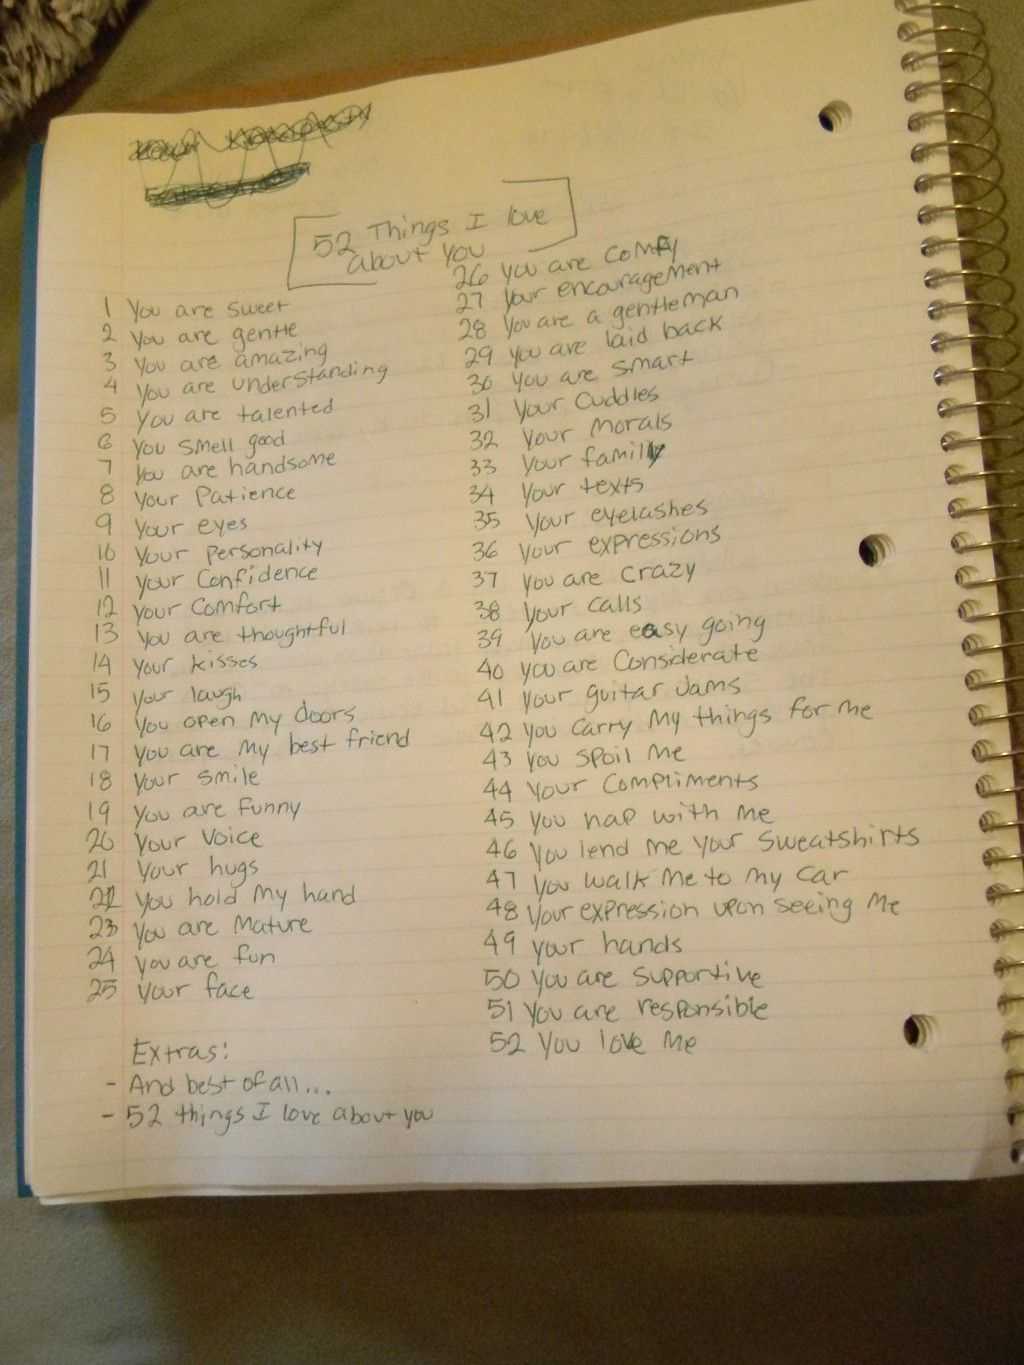 52 Things I love
about You
1 You are sweet
2 You are gentle
3 You are amazing
4 You are understanding
5 You are talented
6 You smell good
7 You are handsome
8 Your Patience
9 Your eyes
10 Your personality
11 Your Confidence
12 Your Comfort
13 You are thoughtful
14 Your kisses
15 Your laugh
16 You open my doors
17 You are my best friend
18 Your smile
19 You are funny
20 Your Voice
21 Your hugs
22 You hold my hand
23 You are Mature
24 You are fun
25 Your face
26 You are comfy
27 Your encouragement
28 You are a gentleman
29 You are laid back
30 You are smart
31 Your Cuddles
32 Your Morals
33 Your family
34 Your texts
35 Your eyelashes
36 Your expressions
37 You are crazy
38 Your calls
39 You are easy going
40 You are Considerate
41 Your guitar Jams
42 You Carry My things for me
43 You spoil Me
44 Your Compliments
45 You nap with me
46 You lend me your sweatshirts
47 You walk Me to my car
48 Your expression upon seeing Me
49 Your hands
50 You are supportive
51 You are responsible
52 You love Me
Extras:
- And best of all...
- 52 things I love about you